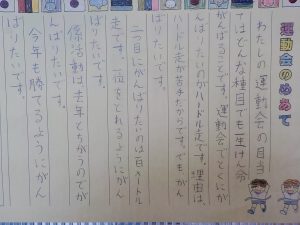 運動会のめあて
わたしの運動会の目当
てはどんな種目でも全けん命
がんばることです。運動会でとくにが
んばりたいのがハードル走です。理由は、
ハードル走が苦手だからです。でもがん
ばりたいです。
二つ目にがんばりたいのは百メートル
走です。一位をとれるようにがん
ばりたいです。
係活動は去年とちがうのでが
んばりたいです。
今年も勝てるようにがん
ばりたいです。